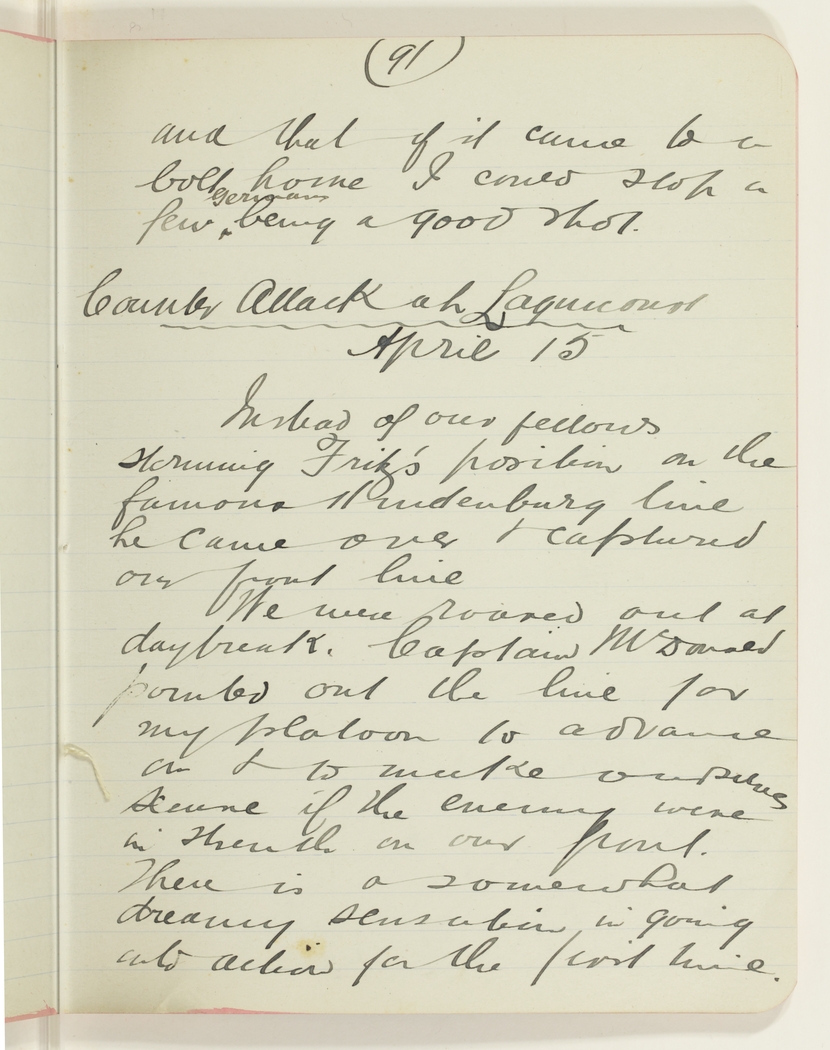 (91)
and that if it came to a
bolt home I could stop a
Germans
few, being a good shot.
Counter Attack at Lagnicourt
April 15
Instead of our fellows
storming Fritz's position on the
famous Hindenburg line
he came over & captured
our front line
We were roared out at
daybreak. Captain McDonald
pointed out the line for
my platoon to advance
on & to make ourselves
secure if the enemy were
in strenth on our front.
There is a somewhat
dreamy sensation in going
into action for the first time.